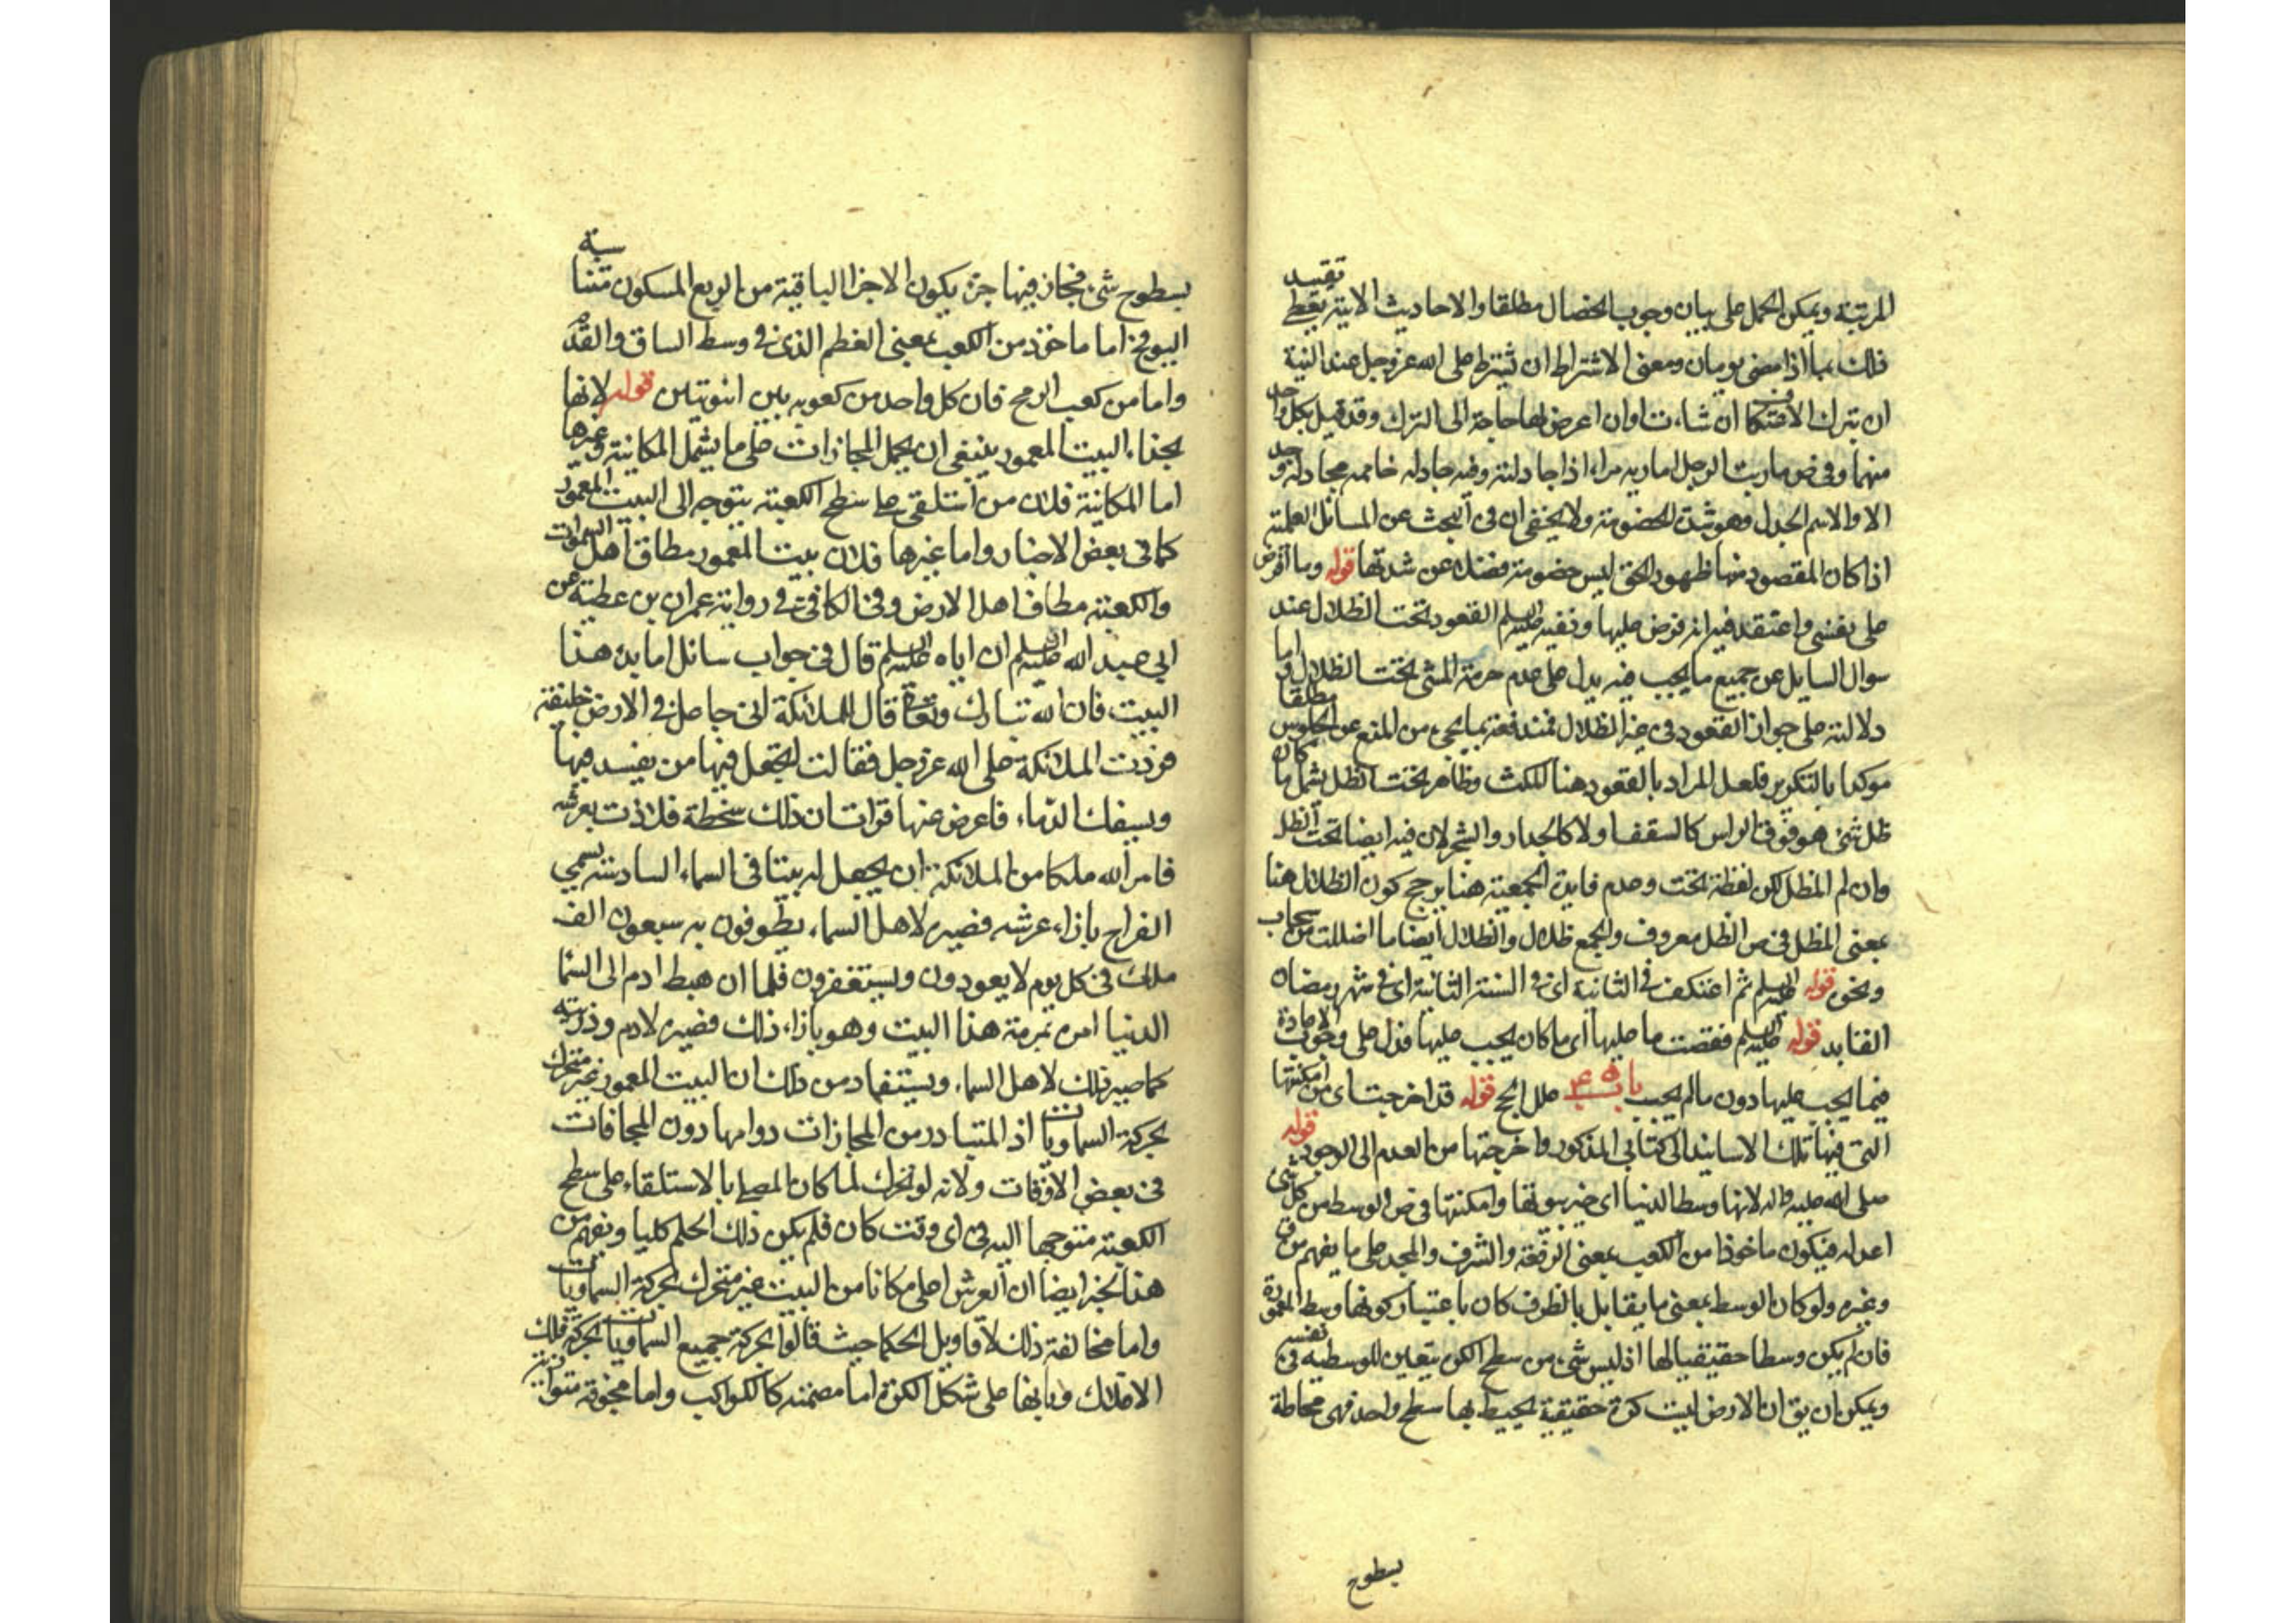 المرتبة ويمكن الحمل على بيان وجوب الخصال مطلقا والاحاديث الاتية يعطى تقييد
ذلك بما اذا مضى يومان ومعنى الاشتراط ان تشترط على الله عز وجل عند النية
ان تترك الاعتكاف ان شاءت او ان اعرض لها حاجة الى الترك وقد قيل بكل واحد
منهما وفى ص ماريت الرجل اماريه مراء اذا جادلته وفيه جادله خاصمه مجادلة وجد
الا والاسم الجدل وهو شدة الخصومة ولا يخفى ان فى البحث عن المسائل العلمية
اذا كان المقصود منها ظهور الحق ليس خصومة فضلا عن شدتها قوله وما افرض
على نفسى واعتقد فيه انه فرض عليها ونفيه عليه السلم القعود تحت الظلال عند
سوال السايل عن جميع ما يجب فيه يدل على عدم حرمة المشى تحت الظلال واما
دلالته على جواز القعود فى غير الظلال فمندفعة بما يجى من المنع عن الجلوس مطلقا
موكدا بالتكرير فلعل المراد بالقعود هنا المكث وظاهر تحت الظل يشمل ما كان
ظل شئ هو فوق الراس كالسقف او لا كالجدار والشجر لان فيه ايضا تحت الظل
وان لم المظل لكن لفظة تحت وعدم فايدة الجمعية هنا يرجح كون الظلال هنا
بمعنى المظل فى ص الظل معروف والجمع ظلال والظلال ايضا ما اظللت من سحاب
ونحوه قوله عليه السلم ثم اعتكف فى الثانية اى فى السنة الثانية اى فى شهر رمضان
القابد قوله عليه السلم فقضت ما عليها اى ما كان يجب عليها فدل على وجوب الاعادة
فيما يجب عليها دون ما لم يجب باب علل الحج قوله قد اخرجت اى من امكنتها
التى فيها تلك الاسانيد الى كتابى المذكور واخرجتها من العدم الى الوجود قوله
صلى الله عليه واله لانها وسط الدنيا اى خير بيوتها وامكنتها فى ص الوسط من كل شئ
اعدله فيكون ماخوذا من الكعب بمعنى الرفعة والشرف والمجد على ما يفهم من ق
وغيره ولو كان الوسط بمعنى ما يقابل بالطرف كان باعتبار كونها وسط المعمورة
فان لم يكن وسطا حقيقيا لها اذ ليس شئ من سطح الكرة يتعين للوسطيه فى نفسه
ويمكن ان يق ان الارض ليست كرة حقيقية يحيط بها سطح واحد فهى محاطة
بسطوح
بسطوح شئ فجاز فيها جزء يكون الاجزا الباقية من الربع المسكون متناسبة
اليه ح اما ماخوذ من الكعب بمعنى العظم الذى فى وسط الساق والقدم
واما من كعب الرمح فان كل واحد من كعوبه بين انبوبتين قوله لانها
بحذاء البيت المعمور ينبغى ان يحمل المحازات على ما يشمل المكانية وغيرها
اما المكانية فلان من استلقى على سطح الكعبة يتوجه الى البيت المعمور
كما فى بعض الاخبار واما غيرها فلان بيت المعمور مطاف اهل السموات
والكعبة مطاف اهل الارض وفى الكافى فى رواية عمران بن عطية عن
ابى عبد الله عليه السلم ان اباه عليه السلم قال فى جواب سائل اما بدء هذا
البيت فان الله تبارك وتعالى قال للملائكة انى جاعل فى الارض خليفة
فردت الملائكة على الله عز وجل فقالت اتجعل فيها من يفسد فيها
ويسفك الدماء فاعرض عنها فرات ان ذلك سخطة فلاذت بعرشه
فامر الله ملكا من الملائكة ان يجعل له بيتا فى السماء السادسة يسمى
الضراح بازاء عرشه فصيره لاهل السماء يطوفون به سبعون الف
ملك فى كل يوم لا يعودون ويستغفرون فلما ان هبط ادم الى السما
الدنيا امره بمرمة هذا البيت وهو بازاء ذلك فصيره لادم وذريته
كما صير ذلك لاهل السماء ويستفاد من ذلك ان البيت المعمور غير متحرك
بحركة السماويات اذ المتبادر من المحازات دوامها دون المحاذات
فى بعض الاوقات ولانه لو تحرك لما كان المصلى بالاستلقاء على سطح
الكعبة متوجها اليه فى اى وقت كان فلم يكن ذلك الحكم كليا ويفهم من
هذا الخبر ايضا ان العرش اعلى مكانا من البيت غير متحرك بحركة السماويات
واما مخالفة ذلك لاقاويل الحكما حيث قالوا بحركة جميع السماويات بحركة فلك
الافلاك وبانها على شكل الكرة اما مصمته كالكواكب واما مجوفة متوازية